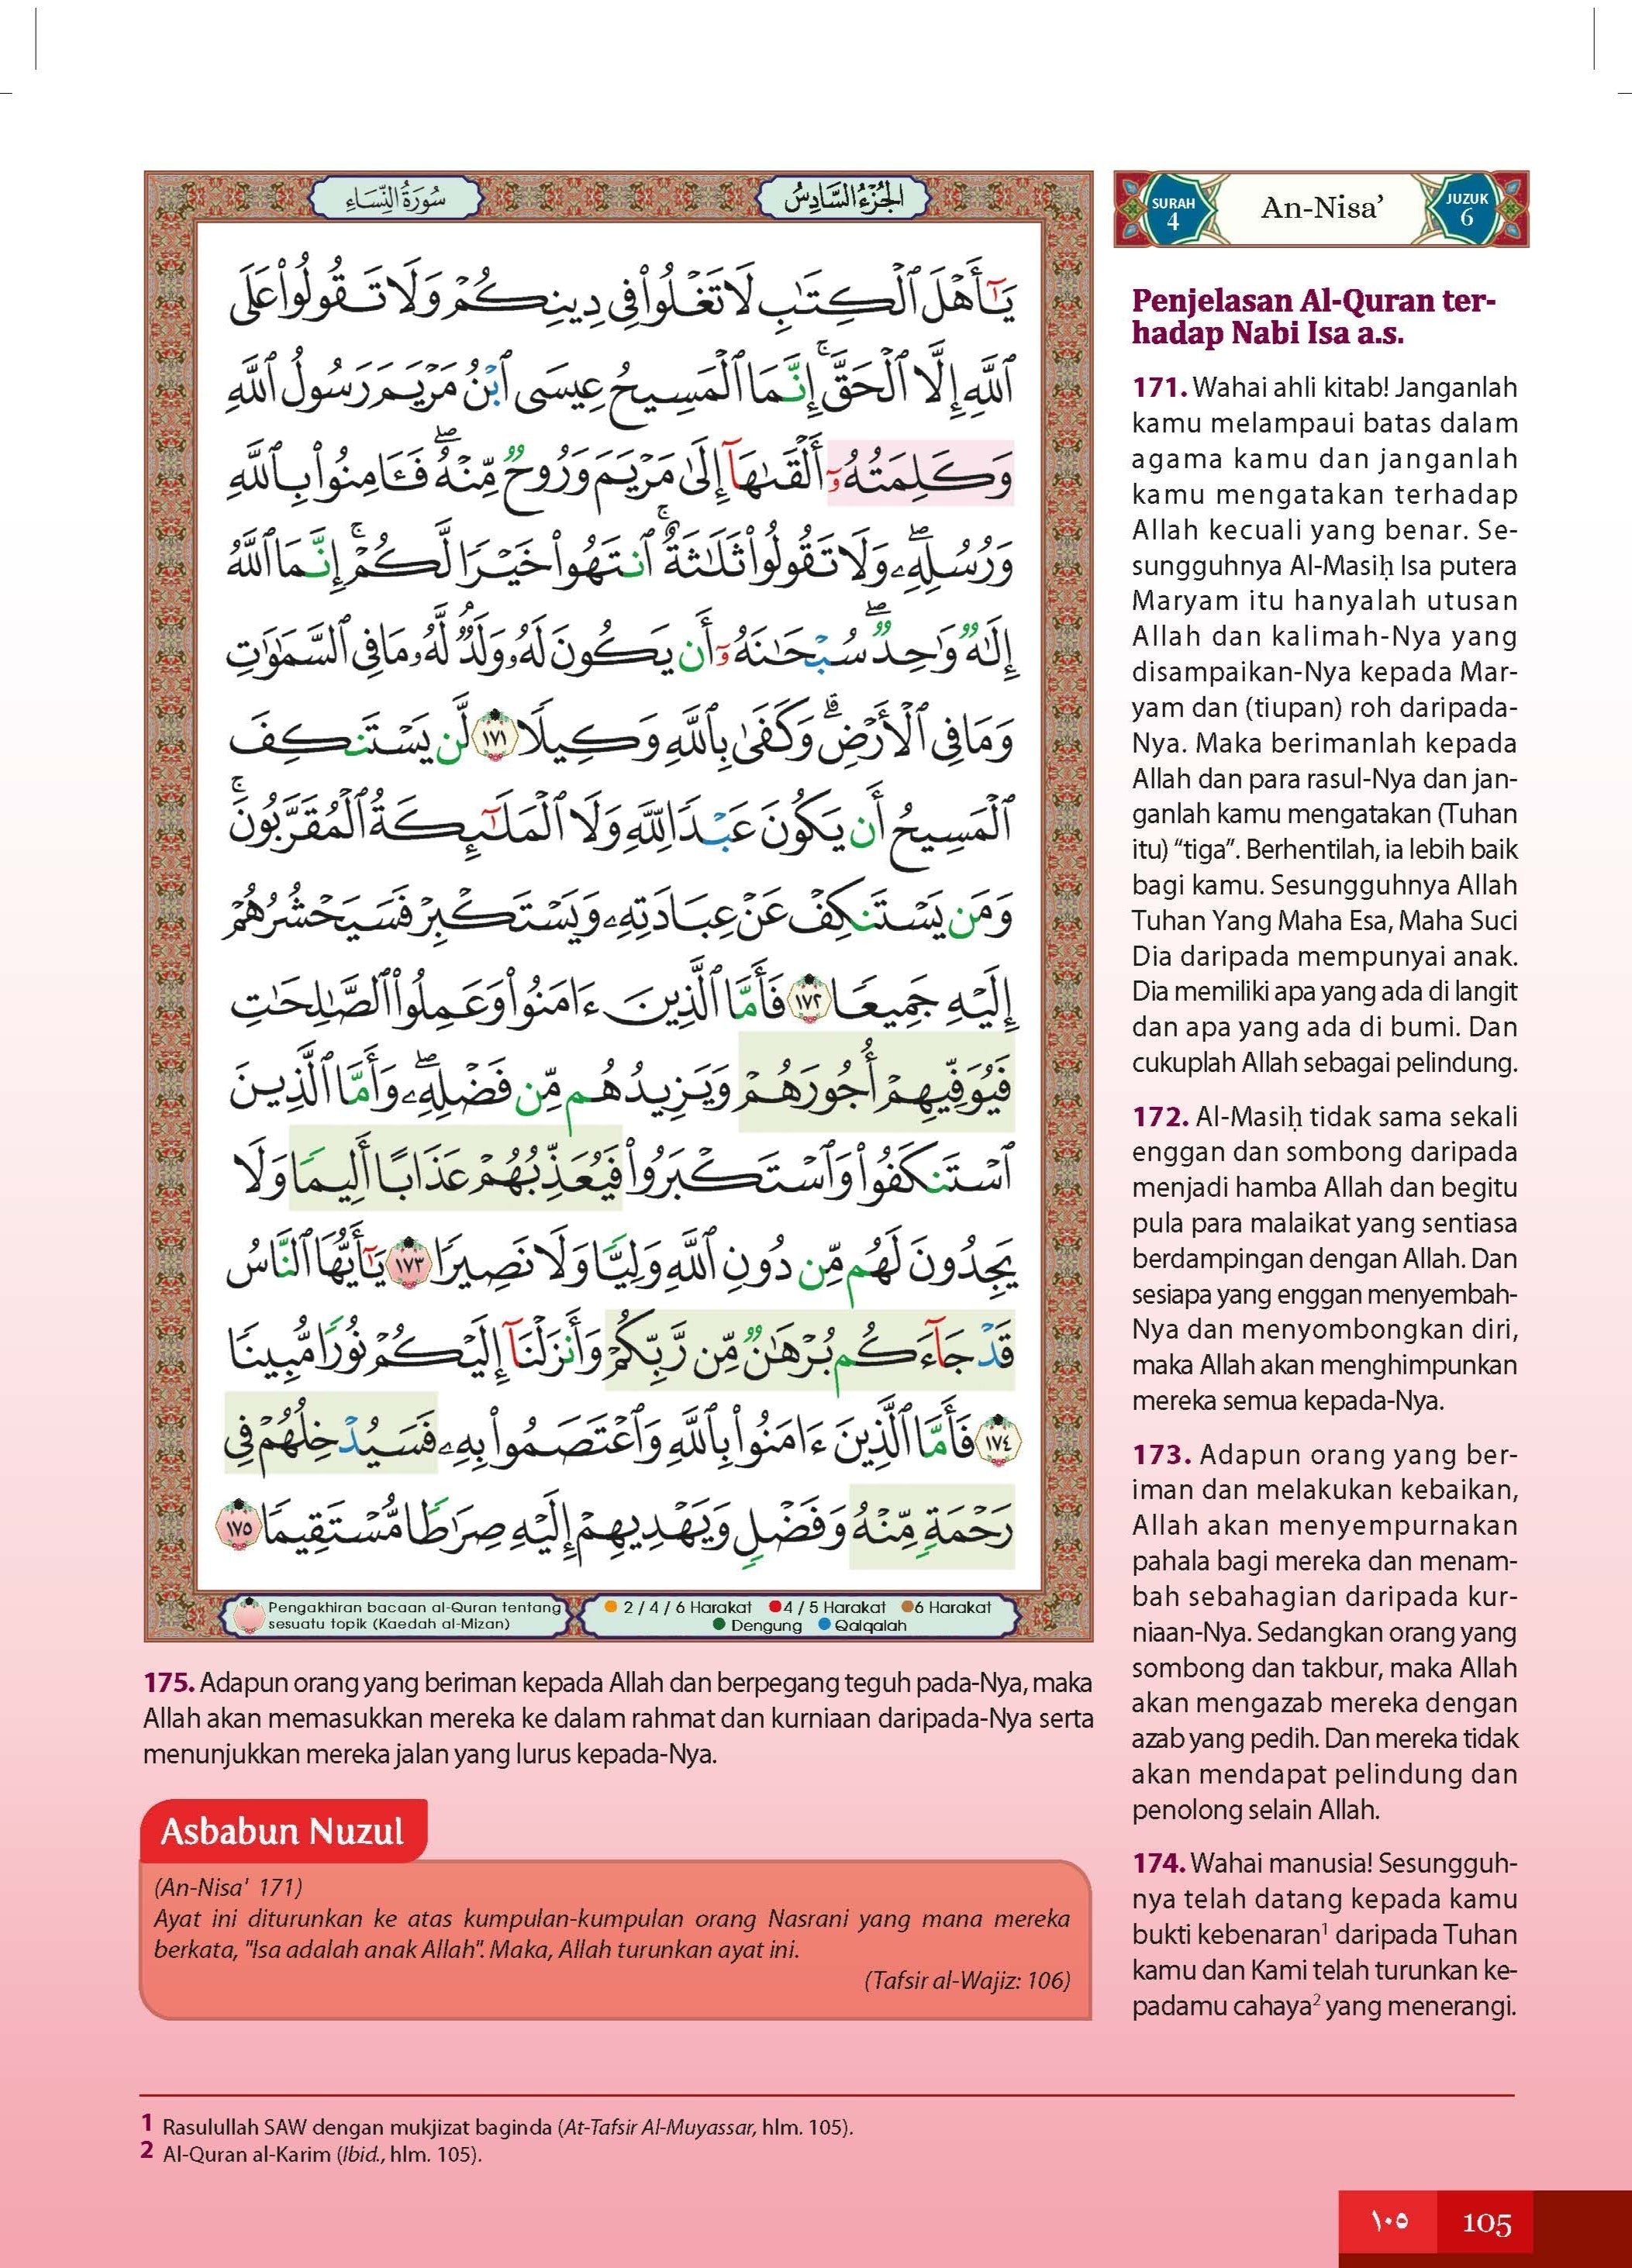 سُورَةُ النِّسَاءِ
الجُزْءُ السَّادِسُ
يَـٰٓأَهْلَ ٱلْكِتَـٰبِ لَا تَغْلُوا۟ فِى دِينِكُمْ وَلَا تَقُولُوا۟ عَلَى
ٱللَّهِ إِلَّا ٱلْحَقَّ ۚ إِنَّمَا ٱلْمَسِيحُ عِيسَى ٱبْنُ مَرْيَمَ رَسُولُ ٱللَّهِ
وَكَلِمَتُهُۥٓ أَلْقَىٰهَآ إِلَىٰ مَرْيَمَ وَرُوحٌ مِّنْهُ ۖ فَـَٔامِنُوا۟ بِٱللَّهِ
وَرُسُلِهِۦ ۖ وَلَا تَقُولُوا۟ ثَلَـٰثَةٌ ۚ ٱنتَهُوا۟ خَيْرًا لَّكُمْ ۚ إِنَّمَا ٱللَّهُ
إِلَـٰهٌ وَٰحِدٌ ۖ سُبْحَـٰنَهُۥٓ أَن يَكُونَ لَهُۥ وَلَدٌ ۘ لَّهُۥ مَا فِى ٱلسَّمَـٰوَٰتِ
وَمَا فِى ٱلْأَرْضِ ۗ وَكَفَىٰ بِٱللَّهِ وَكِيلًا ١٧١ لَّن يَسْتَنكِفَ
ٱلْمَسِيحُ أَن يَكُونَ عَبْدًا لِّلَّهِ وَلَا ٱلْمَلَـٰٓئِكَةُ ٱلْمُقَرَّبُونَ ۚ
وَمَن يَسْتَنكِفْ عَنْ عِبَادَتِهِۦ وَيَسْتَكْبِرْ فَسَيَحْشُرُهُمْ
إِلَيْهِ جَمِيعًا ١٧٢ فَأَمَّا ٱلَّذِينَ ءَامَنُوا۟ وَعَمِلُوا۟ ٱلصَّـٰلِحَـٰتِ
فَيُوَفِّيهِمْ أُجُورَهُمْ وَيَزِيدُهُم مِّن فَضْلِهِۦ ۖ وَأَمَّا ٱلَّذِينَ
ٱسْتَنكَفُوا۟ وَٱسْتَكْبَرُوا۟ فَيُعَذِّبُهُمْ عَذَابًا أَلِيمًا وَلَا
يَجِدُونَ لَهُم مِّن دُونِ ٱللَّهِ وَلِيًّا وَلَا نَصِيرًا ١٧٣ يَـٰٓأَيُّهَا ٱلنَّاسُ
قَدْ جَآءَكُم بُرْهَـٰنٌ مِّن رَّبِّكُمْ وَأَنزَلْنَآ إِلَيْكُمْ نُورًا مُّبِينًا
١٧٤ فَأَمَّا ٱلَّذِينَ ءَامَنُوا۟ بِٱللَّهِ وَٱعْتَصَمُوا۟ بِهِۦ فَسَيُدْخِلُهُمْ فِى
رَحْمَةٍ مِّنْهُ وَفَضْلٍ وَيَهْدِيهِمْ إِلَيْهِ صِرَٰطًا مُّسْتَقِيمًا ١٧٥
Pengakhiran bacaan al-Quran tentang
sesuatu topik (Kaedah al-Mizan)
2 / 4 / 6 Harakat 4 / 5 Harakat 6 Harakat
Dengung Qalqalah
SURAH
4
An-Nisa’
JUZUK
6
Penjelasan Al-Quran ter-
hadap Nabi Isa a.s.
171. Wahai ahli kitab! Janganlah
kamu melampaui batas dalam
agama kamu dan janganlah
kamu mengatakan terhadap
Allah kecuali yang benar. Se-
sungguhnya Al-Masiḥ Isa putera
Maryam itu hanyalah utusan
Allah dan kalimah-Nya yang
disampaikan-Nya kepada Mar-
yam dan (tiupan) roh daripada-
Nya. Maka berimanlah kepada
Allah dan para rasul-Nya dan jan-
ganlah kamu mengatakan (Tuhan
itu) “tiga”. Berhentilah, ia lebih baik
bagi kamu. Sesungguhnya Allah
Tuhan Yang Maha Esa, Maha Suci
Dia daripada mempunyai anak.
Dia memiliki apa yang ada di langit
dan apa yang ada di bumi. Dan
cukuplah Allah sebagai pelindung.
172. Al-Masiḥ tidak sama sekali
enggan dan sombong daripada
menjadi hamba Allah dan begitu
pula para malaikat yang sentiasa
berdampingan dengan Allah. Dan
sesiapa yang enggan menyembah-
Nya dan menyombongkan diri,
maka Allah akan menghimpunkan
mereka semua kepada-Nya.
173. Adapun orang yang ber-
iman dan melakukan kebaikan,
Allah akan menyempurnakan
pahala bagi mereka dan menam-
bah sebahagian daripada kur-
niaan-Nya. Sedangkan orang yang
sombong dan takbur, maka Allah
akan mengazab mereka dengan
azab yang pedih. Dan mereka tidak
akan mendapat pelindung dan
penolong selain Allah.
174. Wahai manusia! Sesungguh-
nya telah datang kepada kamu
bukti kebenaran¹ daripada Tuhan
kamu dan Kami telah turunkan ke-
padamu cahaya² yang menerangi.
175. Adapun orang yang beriman kepada Allah dan berpegang teguh pada-Nya, maka
Allah akan memasukkan mereka ke dalam rahmat dan kurniaan daripada-Nya serta
menunjukkan mereka jalan yang lurus kepada-Nya.
Asbabun Nuzul
(An-Nisa' 171)
Ayat ini diturunkan ke atas kumpulan-kumpulan orang Nasrani yang mana mereka
berkata, "Isa adalah anak Allah". Maka, Allah turunkan ayat ini.
(Tafsir al-Wajiz: 106)
1 Rasulullah SAW dengan mukjizat baginda (At-Tafsir Al-Muyassar, hlm. 105).
2 Al-Quran al-Karim (Ibid., hlm. 105).
١٠٥ 105